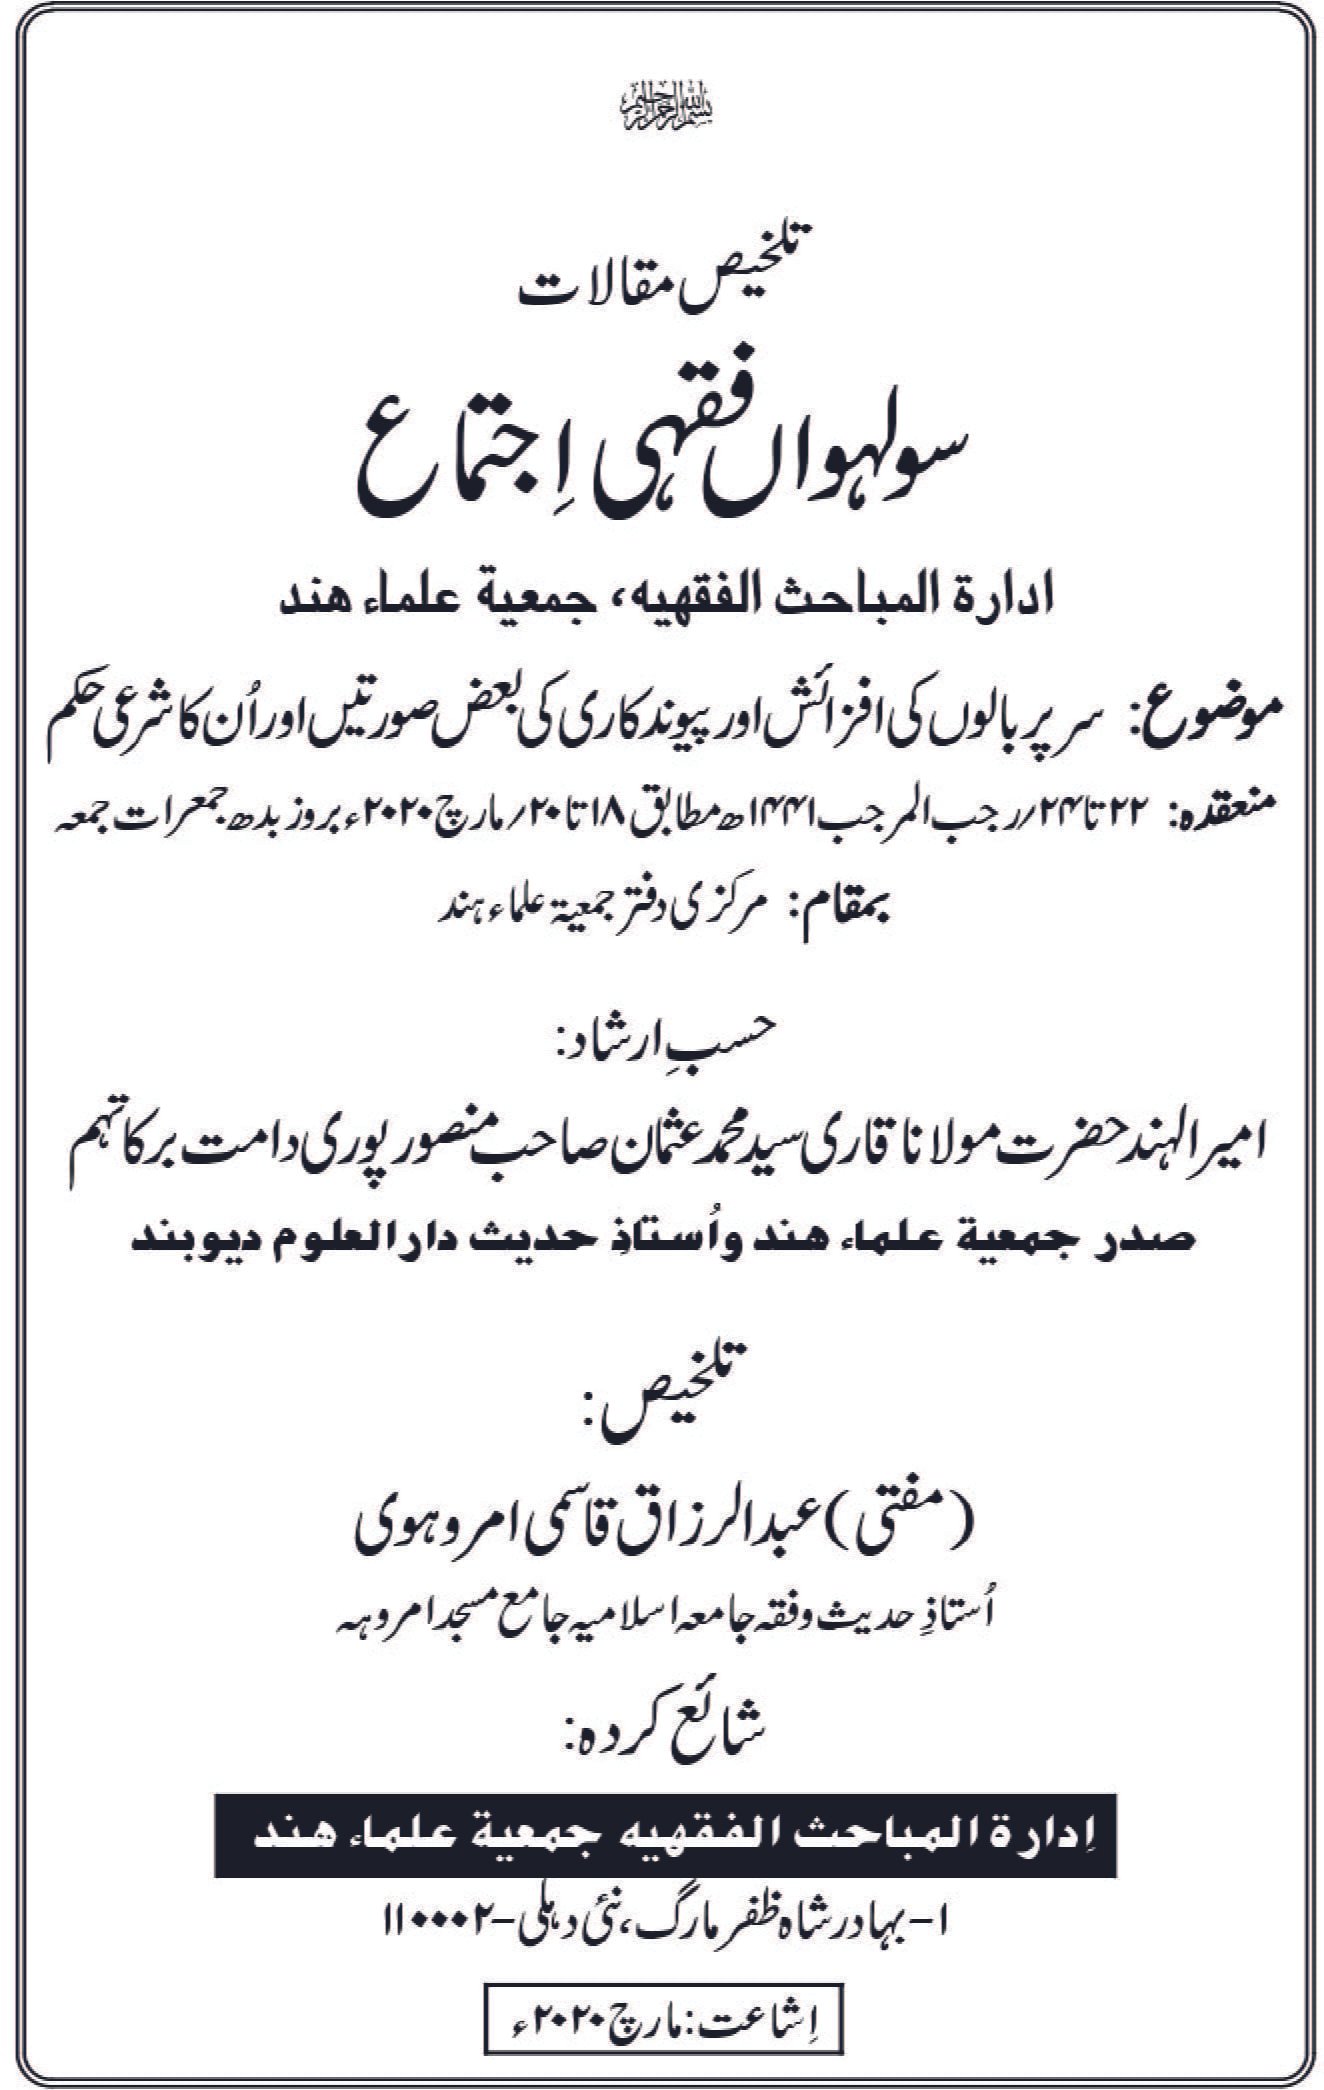 بسم اللہ الرحمن الرحیم
تلخیص مقالات
سولہواں فقہی اِجتماع
ادارۃ المباحث الفقهیه، جمعیۃ علماء هند
موضوع: سر پر بالوں کی افزائش اور پیوندکاری کی بعض صورتیں اور اُن کا شرعی حکم
منعقدہ: ۲۲ تا ۲۴؍رجب المرجب ۱۴۴۱ھ مطابق ۱۸ تا ۲۰؍مارچ ۲۰۲۰ء بروز بدھ جمعرات جمعہ
بمقام: مرکزی دفتر جمعیۃ علماء ہند
حسبِ ارشاد:
امیر الہند حضرت مولانا قاری سید محمد عثمان صاحب منصور پوری دامت برکاتہم
صدر جمعیۃ علماء هند و اُستاذِ حدیث دارالعلوم دیوبند
تلخیص:
(مفتی) عبدالرزاق قاسمی امروہوی
اُستاذِ حدیث وفقہ جامعہ اسلامیہ جامع مسجد امروہہ
شائع کردہ:
اِدارۃ المباحث الفقهیه جمعیۃ علماء هند
۱- بہادر شاہ ظفر مارگ، نئی دہلی-۱۱۰۰۰۲
اِشاعت: مارچ ۲۰۲۰ء